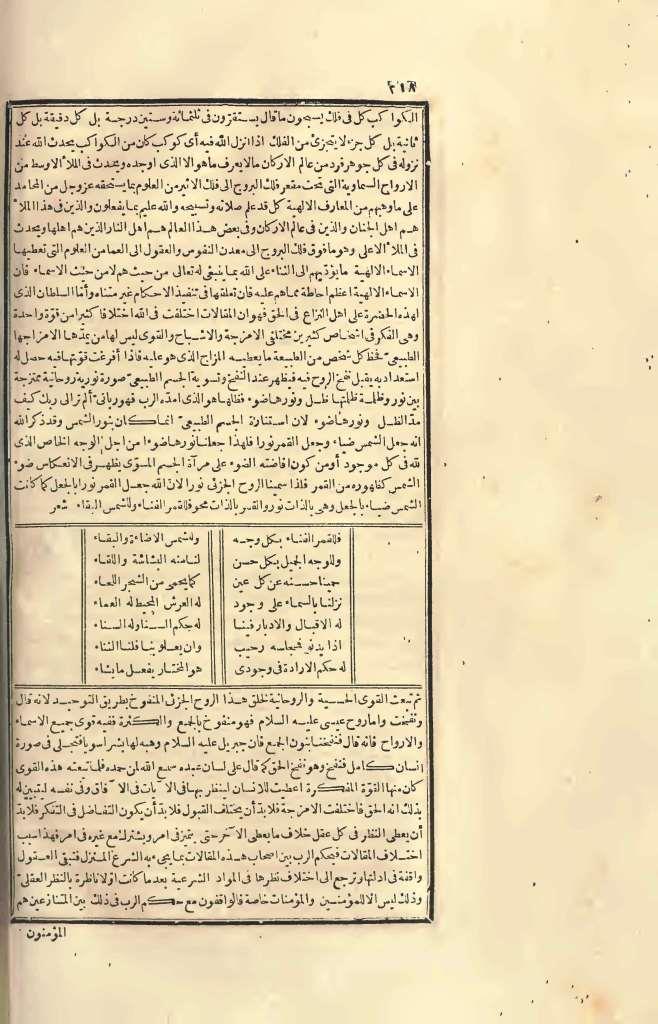 ٢١٨
الكواكب كل في فلك يسبحون ما قال يستقرون في ثلثمائة وستين درجة بل كل دقيقة بل كل
ثانية بل كل جزء لا يتجزئ من الفلك اذا انزل الله فيه أي كوكب كان من الكواكب يحدث الله عند
نزوله في كل جوهر فرد من عالم الاركان مالا يعرف ما هو الا الذي اوجده ويحدث في الملأ الاوسط من
الارواح السماوية التي تحت مقعر فلك البروج الى فلك الاثير من العلوم بما يستحقه عز وجل من المحامد
على ما وهبهم من المعارف الالهية كل قد علم صلاته وتسبيحه والله عليم بما يفعلون والذين في هذا الملأ
هم اهل الجنان والذين في عالم الاركان وفي بعض هذا العالم هم اهل النار الذين هم اهلها ويحدث
في الملأ الاعلى وهو ما فوق فلك البروج الى معدن النفوس والعقول الى العما من العلوم التي تعطيها
الاسماء الالهية ما يؤديهم الى الثناء على الله بما ينبغي له تعالى من حيث هم لا من حيث الاسماء فان
الاسماء الالهية اعظم احاطة مما هم عليه فان تعلقها في تنفيذ الاحكام غير متناه وأما السلطان الذي
لهذه الحضرة على اهل النزاع في الحق فهو ان المقالات اختلفت في الله اختلافا كثيرا من قوة واحدة
وهي الفكر في اشخاص كثيرين مختلفي الامزجة والامشاج والقوى ليس لها من يمدها الا مزاجها
الطبيعي فحظ كل شخص من الطبيعة ما يعطيه المزاج الذي هو عليه فاذا أفرغت قوتها فيه حصل له
استعداد به يقبل نفخ الروح فيه فيظهر عند النفخ وتسوية الجسم الطبيعي صورة نورية روحانية ممتزجة
بين نور وظلمة ظلمتها ظل ونورها ضوء فظلها هو الذي امده الرب فهو رباني ألم تر الى ربك كيف
مد الظل ونورها ضوء لان استنارة الجسم الطبيعي انما كان بنور الشمس وقد ذكر الله
انه جعل الشمس ضياء وجعل القمر نورا فلهذا جعلنا نورها ضوءا من اجل الوجه الخاص الذي
لله في كل موجود أو من كون افاضة الضوء على مرآة الجسم المسوى يظهر في الانعكاس ضوء
الشمس كظهوره من القمر فلذا سمينا الروح الجزئي نورا لان الله جعل القمر نورا بالجعل كما كانت
الشمس ضياء بالجعل وهي بالذات نور والقمر بالذات محو فللقمر الفناء وللشمس البقاء شعر
فللقمر الفناء بكل وجه وللشمس الاضاءة والبقاء
وللوجه الجميل بكل حسن لنا منه البشاشة واللقاء
حمينا حسنه عن كل عين كما يحمى من الشجر اللحاء
نزلنا بالسماء على وجود له العرش المحيط له العماء
له الاقبال والادبار فينا له حكم السنا وله السناء
اذا يدنو فمجلسه رحيب وان يعلو بنا فلنا الثناء
له حكم الارادة في وجودى هو المختار يفعل ما يشاء
ثم تبعث القوى الحسية والروحانية لخلق هذا الروح الجزئي المنفوخ بطريق التوحيد لانه قال
ونفخت واما روح عيسى عليه السلام فهو منفوخ بالجمع والكثرة ففيه قوى جميع الاسماء
والارواح فانه قال فنفخنا بنون الجمع فان جبريل عليه السلام وهبه لها بشرا سويا فتجلى في صورة
انسان كامل فنفخ وهو نفخ الحق كما قال على لسان عبده سمع الله لمن حمده فلما تبعته هذه القوى
كان منها القوة المفكرة اعطيت للانسان لينظر بها في الآيات في الآفاق وفي نفسه ليتبين له
بذلك انه الحق فاختلفت الامزجة فلابد أن يختلف القبول فلابد أن يكون التفاضل في التفكر فلابد
أن يعطى النظر في كل عقل خلاف ما يعطى الآخر حتى يتميز في امر ويشترك مع غيره في امر فهذا سبب
اختلاف المقالات فيحكم الرب بين اصحاب هذه المقالات بما يجيء به الشرع المنزل فتبقى العقول
واقفة في ادلتها وترجع الى اختلاف نظرها في المواد الشرعية بعد ما كانت اولا ناظرة بالنظر العقلي
وذلك ليس الا للمؤمنين والمؤمنات خاصة فالواقفون مع حكم الرب في ذلك بين المتنازعين هم
المؤمنون